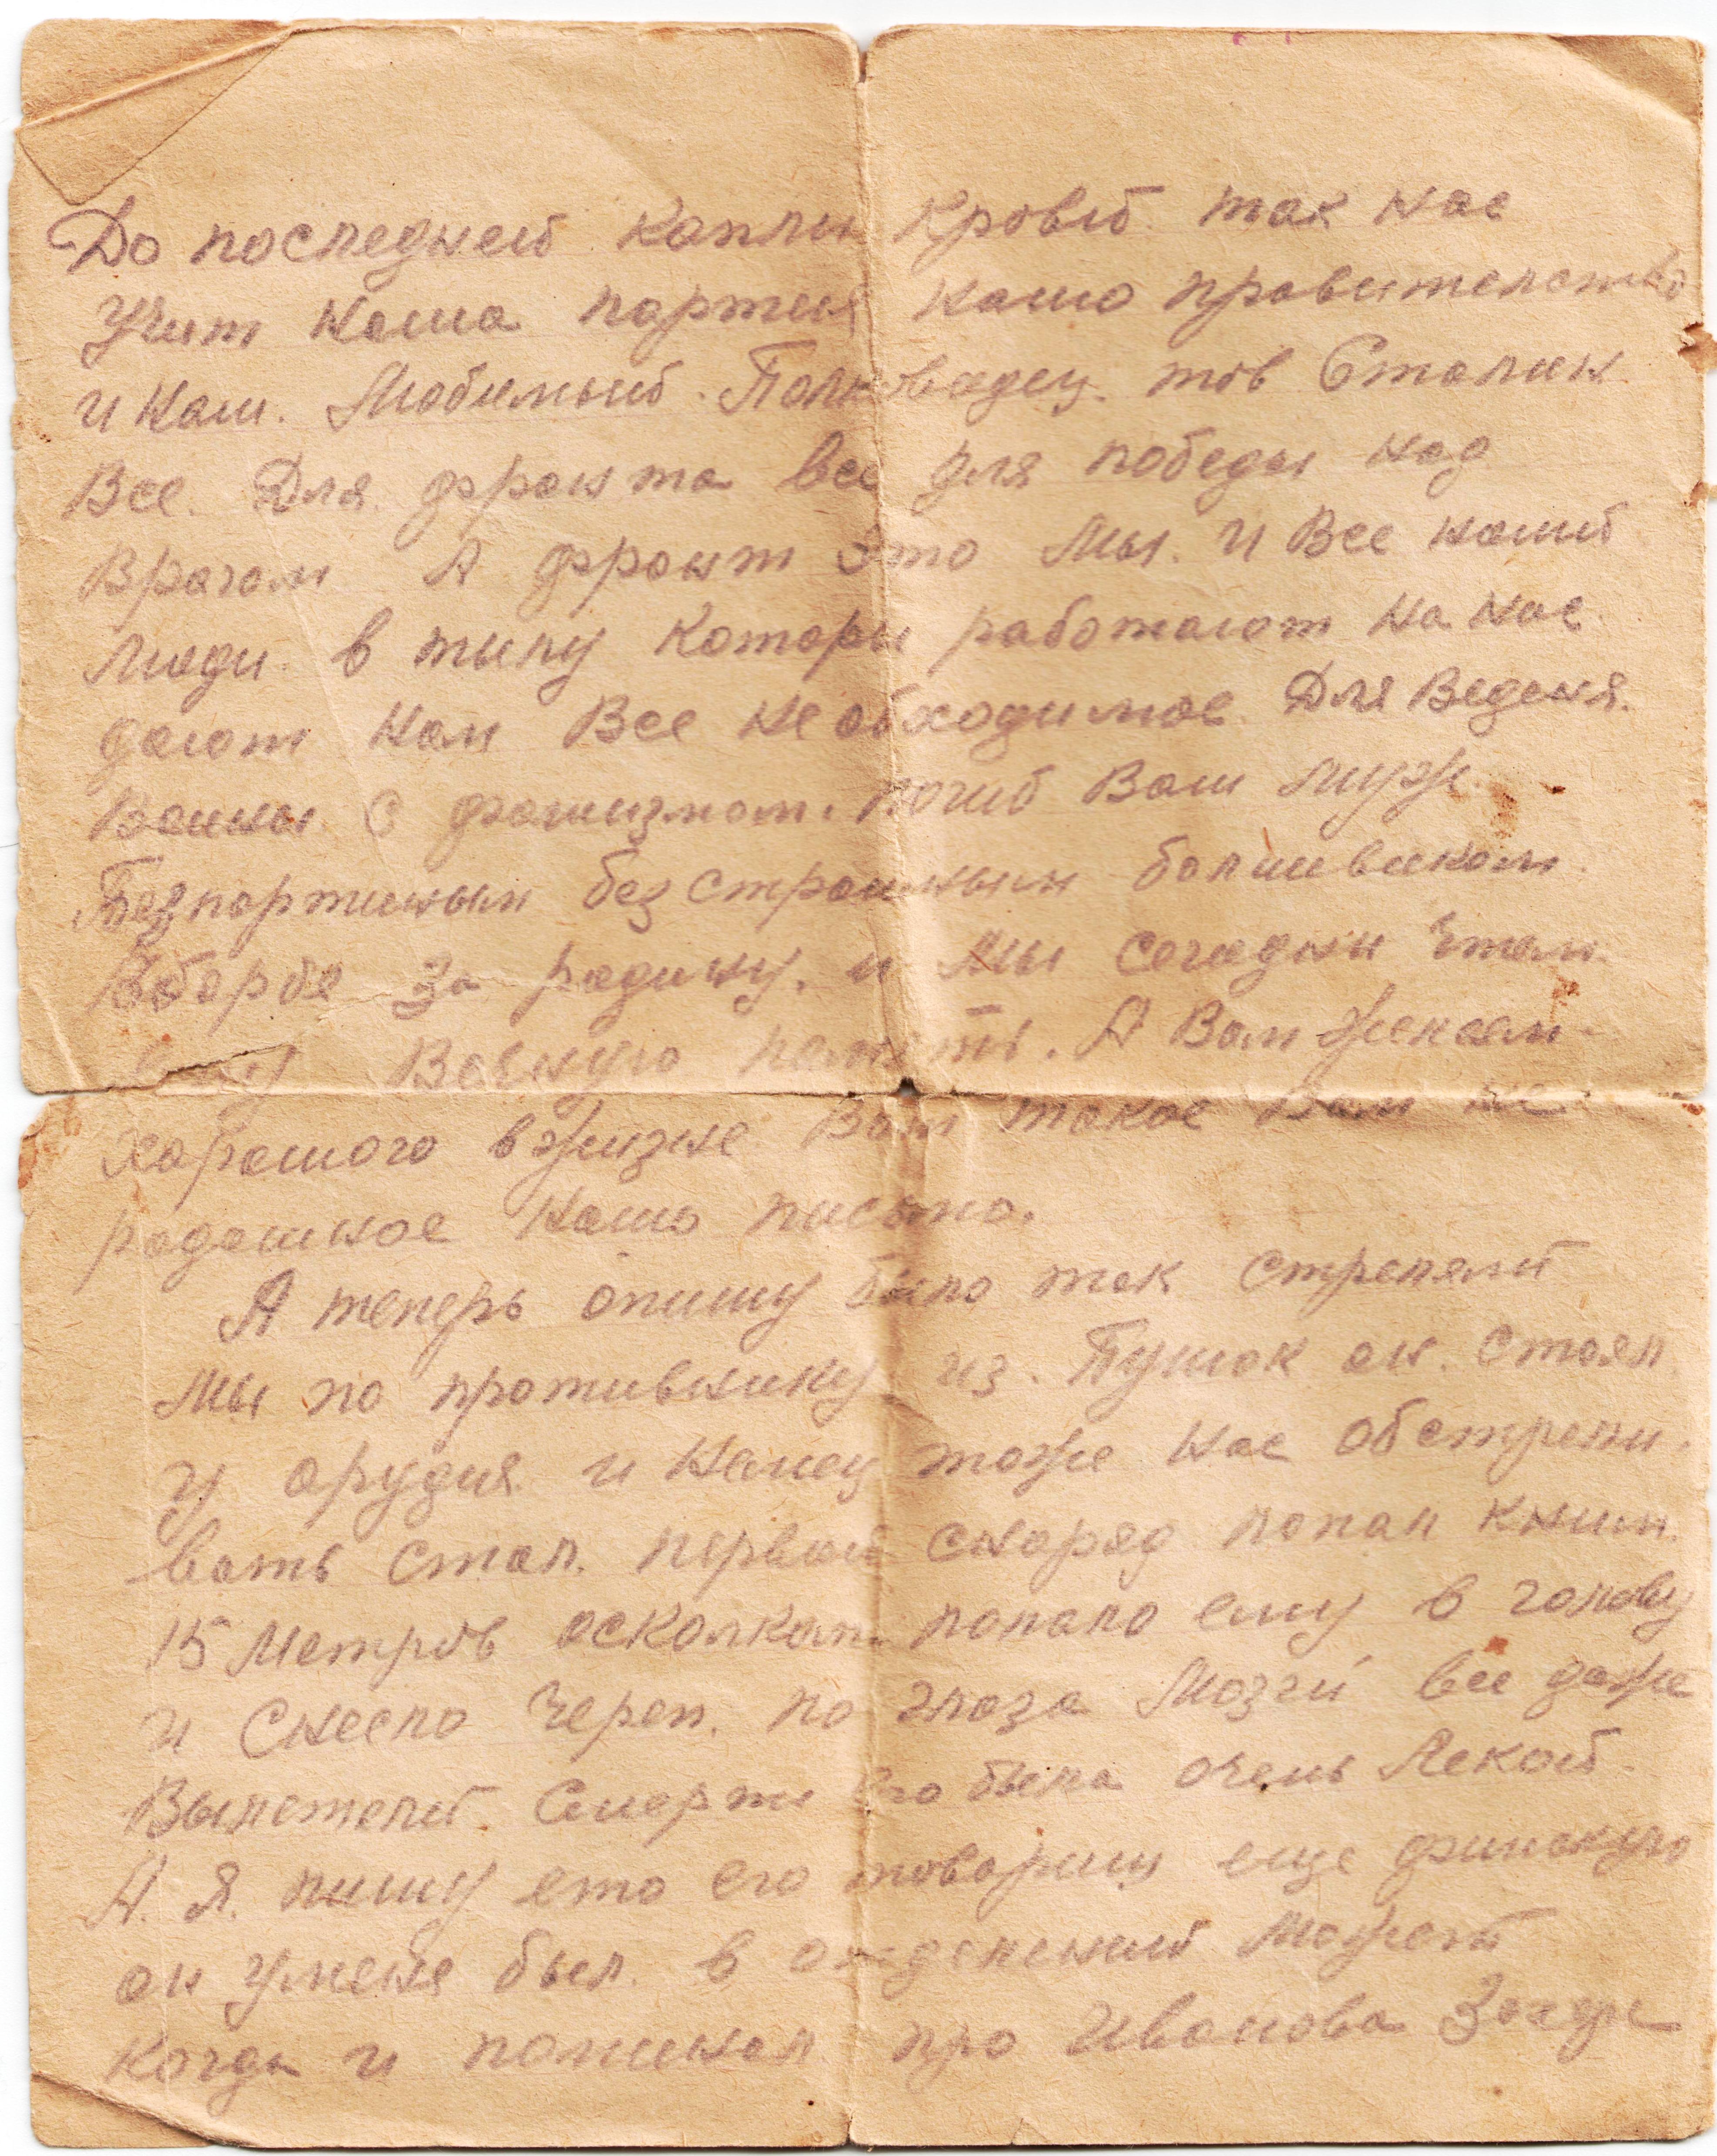 До последней каплы Кровй так нас
Учит наша партия нашо правителство
и наш. Любимый. Полковадец. тов Сталин
Все. Для. фронта все для победы над
Врагом А фронт это Мы. и Все наший
Люди. в тылу Каторы работают на нас.
дают нам Все необходимое Для Веденя.
Воины С фашизмом. погиб Ваш Муж.
Безпартийным безстрашным болшивиком.
Вборбе За родину. и Мы Сегодни Чтем.
Вечную память. А Вам Желаем-
харошого вжизне Вот такое Вам не
радошное нашо писмо.
А теперь опишу было так стрелялй
Мы по противнику из. Пушок он. Стоял
у орудия и Немец тоже нас обстрели.
вать Стал. первый снаряд попал кним.
15 Метров асколкам попало ему в голову
и Снесло Череп. по глаза Мозгй все даже
Вылетелй. Смерть его была очень Лекой.
А. Я. пишу ето его товарищ еще финскую
он уменя был. в отделений Может
Когда и поминал про Иванова